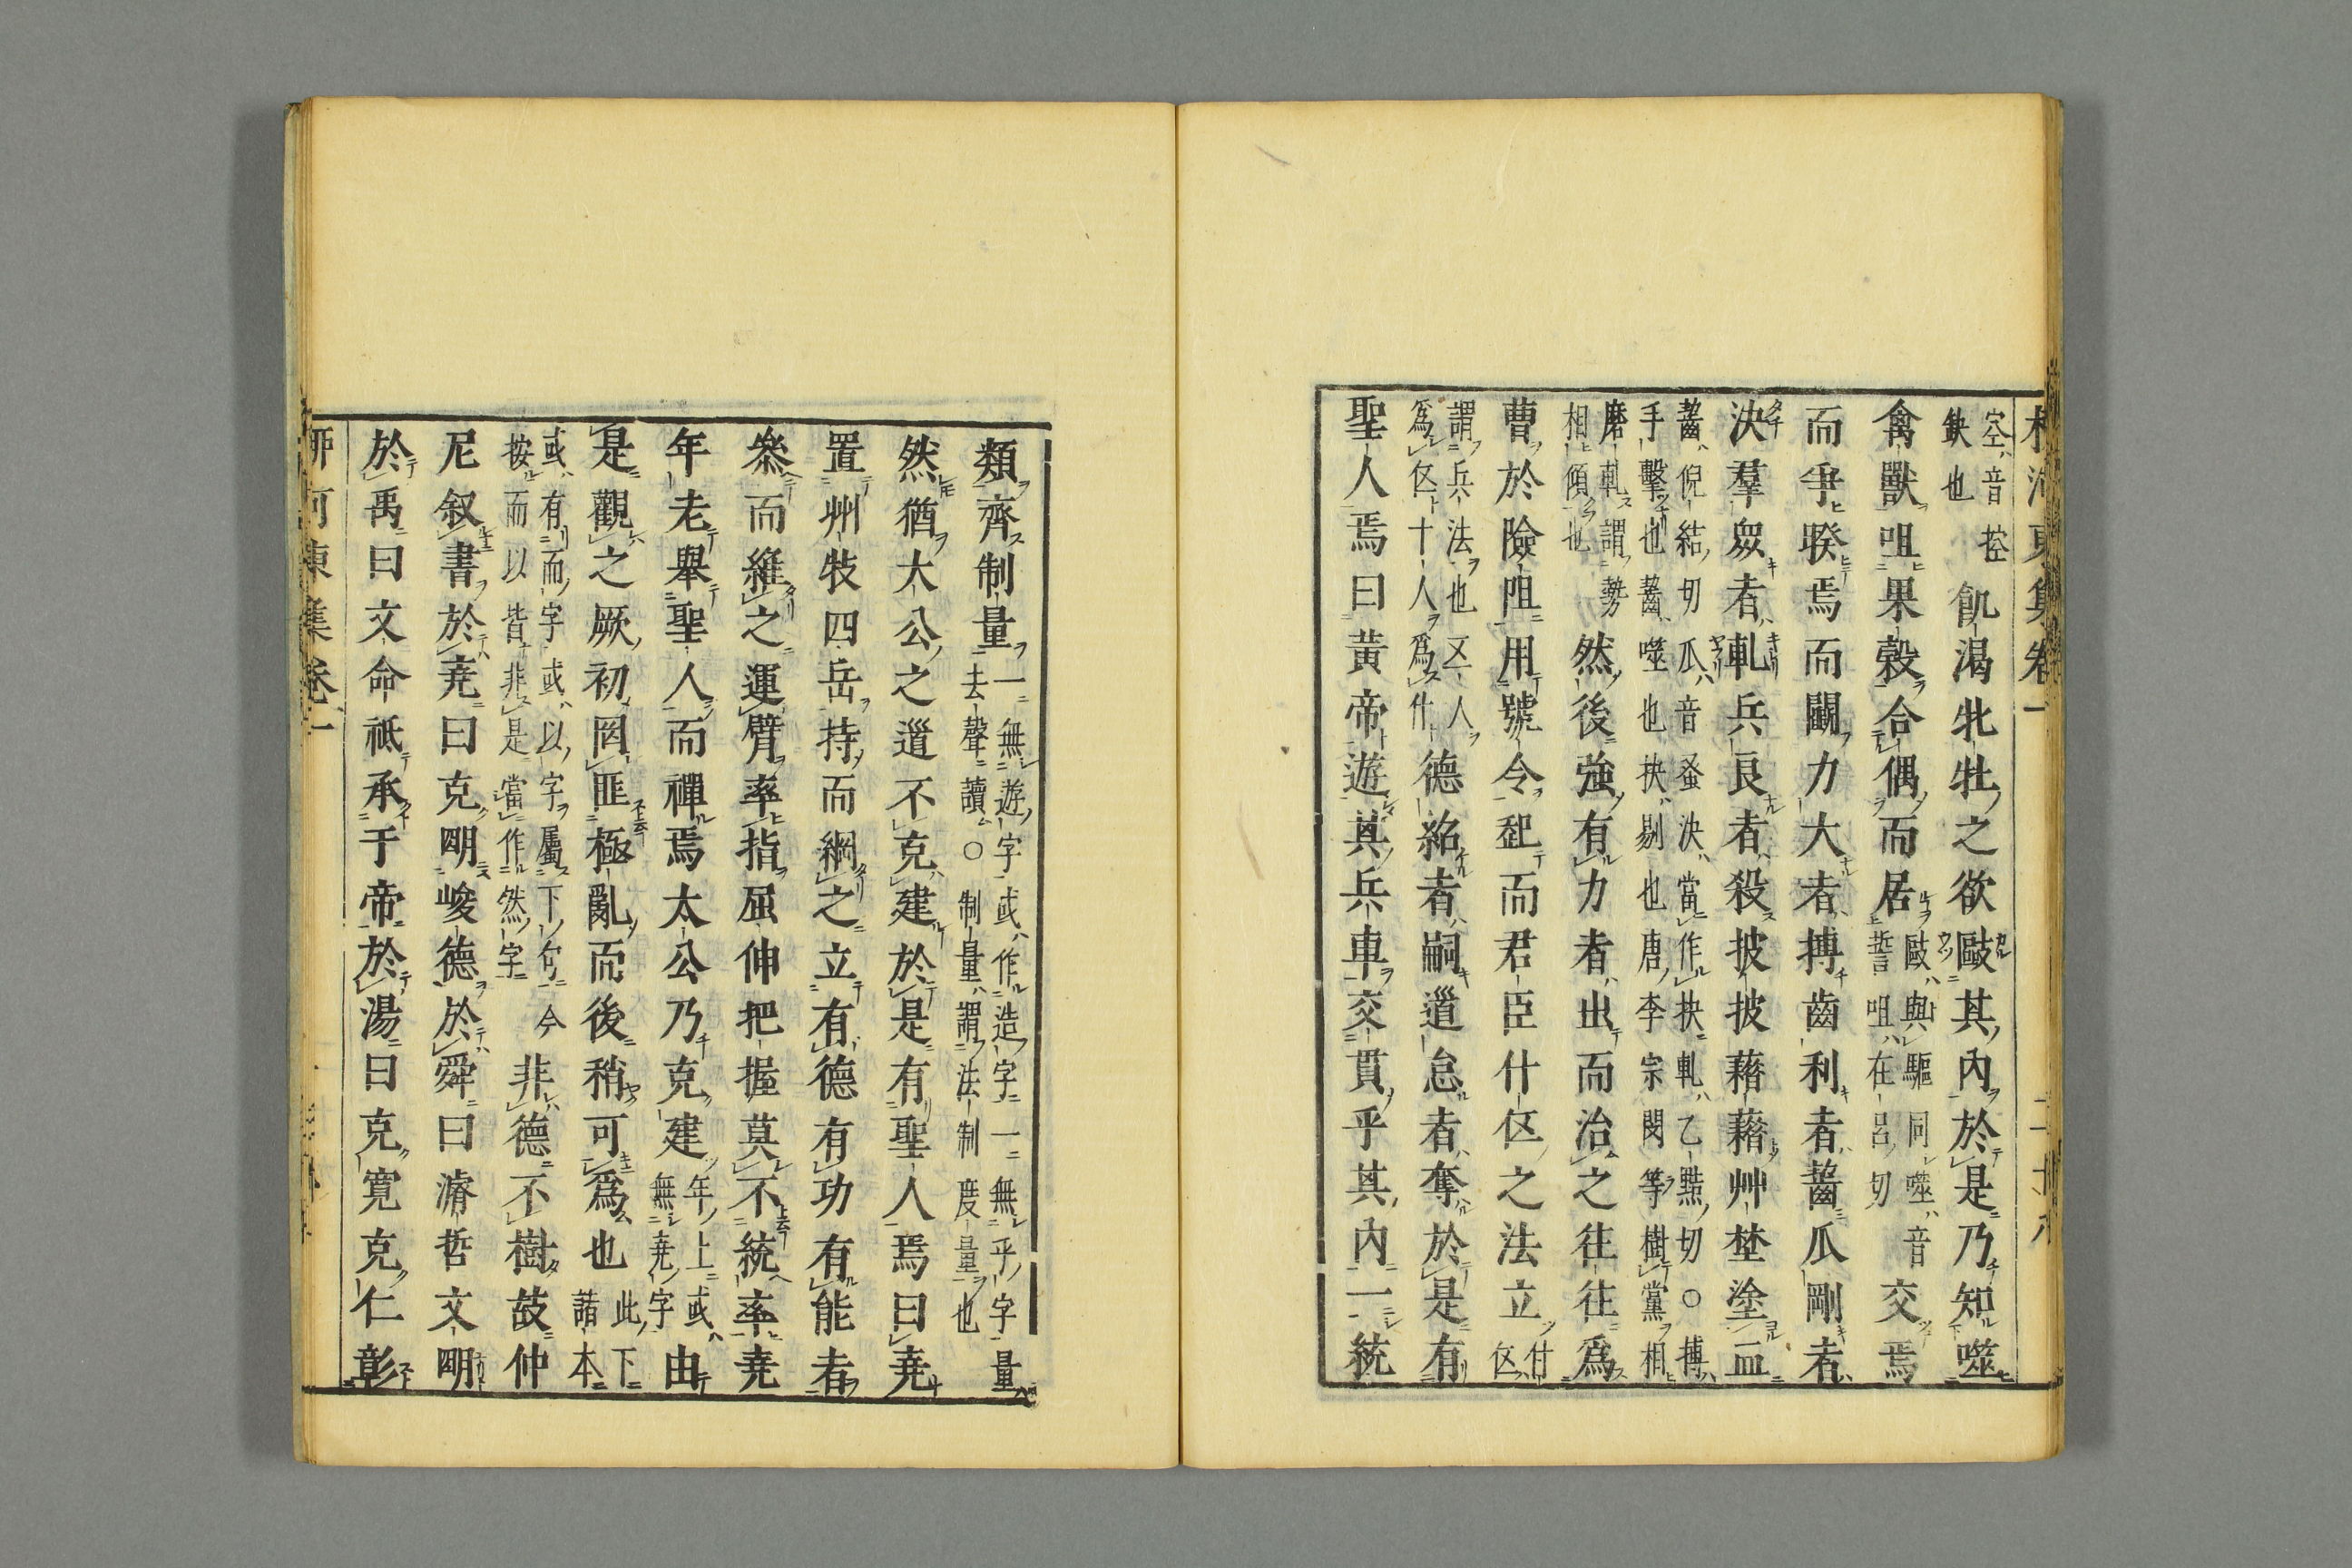 空音控
缺也 飢渴牝牡之欲敺其內於是乃知噬
禽獸咀果穀合偶而居 敺與驅同噬音
誓咀在呂切 交焉
而爭睽焉而鬬力大者搏齒利者齧爪剛者
決羣衆者軋兵良者殺披披藉藉艸埜塗血
齧倪結切爪音蚤決當作抉軋乙黠切○搏
手擊也齧噬也抉剔也唐李宗閔等樹黨相
磨軋謂勢
相傾也 然後強有力者出而治之往往爲
曹於險阻用號令起而君臣什伍之法立 什伍
謂兵法也五人
爲伍十人爲什 德紹者嗣道怠者奪於是有
聖人焉曰黃帝遊其兵車交貫乎其內一統
類齊制量 一無遊字或作造字一無乎字量
去聲讀○制量謂法制度量也
然猶大公之道不克建於是有聖人焉曰堯
置州牧四岳持而綱之立有德有功有能者
叅而維之運臂率指屈伸把握莫不統率堯
年老舉聖人而禪焉太公乃克建 年上或
無堯字 由
是觀之厥初罔匪極亂而後稍可爲也 此下
諸本
或有而字或以字屬下句今
按而以皆非是當作然字 非德不樹故仲
尼叙書於堯曰克明峻德於舜曰濬哲文明
於禹曰文命祗承于帝於湯曰克寬克仁彰
柳河東集卷一